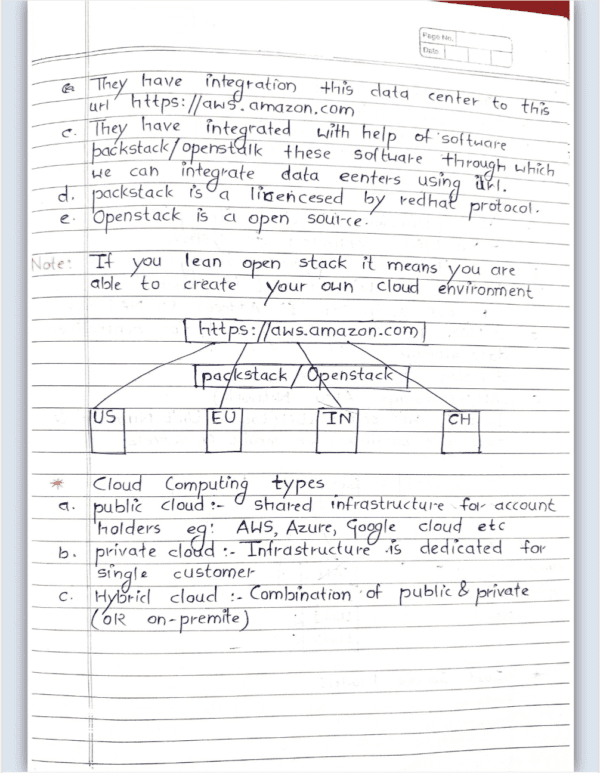 Page No.
Date
They have integration this data center to this
url https://aws.amazon.com
c. They have integrated with help of software
packstack/openstalk these software through which
we can integrate data eenters using url.
d. packstack is a licencesed by redhat protocol.
e. Openstack is a open source.
Note: If you lean open stack it means you are
able to create your own cloud environment
https://aws.amazon.com
packstack / Openstack
US EU IN CH
* Cloud Computing types
a. public cloud :- shared infrastructure for account
holders eg: AWS, Azure, Google cloud etc
b. private cloud :- Infrastructure is dedicated for
single customer
c. Hybrid cloud :- Combination of public & private
(OR on-premite)